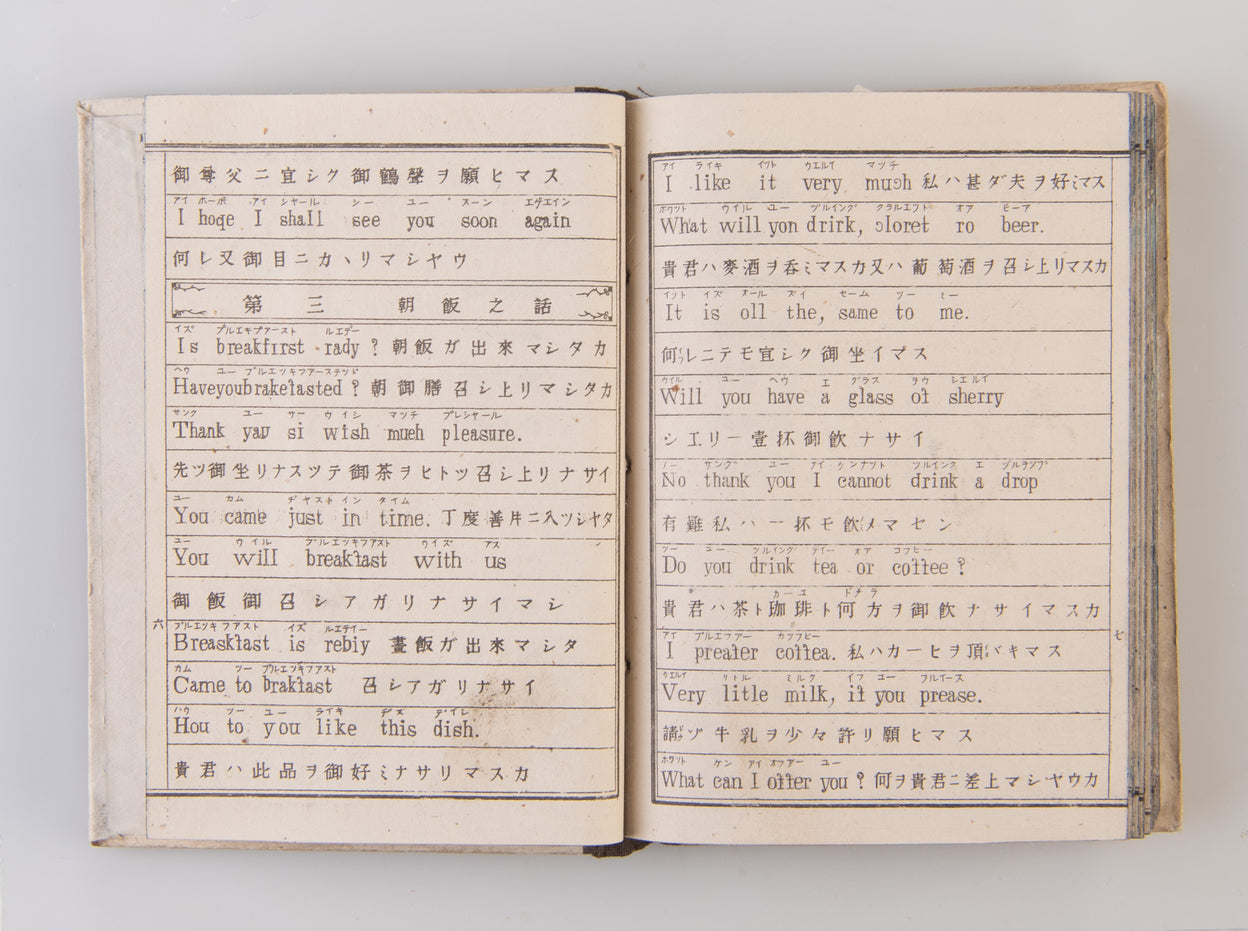 御母父ニ宜シク御鶴聲ヲ願ヒマス
アイ ホーポ アイ シヤール シー ユー スーン エゲエイン
I hoqe I shall see you soon again
何レ又御目ニカヽリマシヤウ
第三 朝飯之話
イズ ブルエキフアースト ルエデー
Is breakfırst rady? 朝飯ガ出來マシタカ
ヘウ ユー ブルエツキフアーステツド
Haveyoubrakefasted? 朝御膳召シ上リマシタカ
サンク ユー サー ウイシ マツチ プレシヤール
Thank yau si wish mueh pleasure.
先ツ御坐リナスツテ御茶ヲヒトツ召シ上リナサイ
ユー カム ヂヤスト イン タイム
You came just in time. 丁度善片ニ入ツシヤタ
ユー ウイル ブルエツキフアスト ウイズ アス
You will breakfast with us
御飯御召シアガリナサイマシ
ブルエツキフアスト イズ ルエテイー
Breaskfast is rebiy 晝飯ガ出來マシタ
カム ツー ブルエツキフアスト
Came to brakfast 召シアガリナサイ
ハウ ツー ユー ライキ ヂス デイレ
Hou to you like this dish.
貴君ハ此品ヲ御好ミナサリマスカ
六
アイ ライキ イツト ウエルイ マツチ
I like it very much 私ハ甚ダ夫ヲ好ミマス
ホワツト ウイル ユー ヅルイング クラルエツト オア ビーア
What will yon drirk, cloret ro beer.
貴君ハ麥酒ヲ呑ミマスカ又ハ葡萄酒ヲ召シ上リマスカ
イツト イズ オール ズイ セーム ツー ミー
It is oll the, same to me.
何レニテモ宜シク御坐イマス
ウイル ユー ヘウ エ グラス ヲウ シエルイ
Will you have a glass of sherry
シエリー壹抔御飲ナサイ
ノー サング ユー アイ ケンナツト ヅルインク エ ヅルヲツプ
No thank you I cannot drink a drop
有難私ハ一抔モ飲メマセン
ツー ユー ヅルイング テイー オア コツヒー
Do you drink tea or coffee?
カーユ ドチラ
貴君ハ茶ト珈琲ト何方ヲ御飲ナサイマスカ
アイ プルエフアー カツフヒー
I preafer coffea. 私ハカーヒヲ頂バキマス
ウエルイ リトル ミルク イフ ユー フルイース
Very litle milk, if you prease.
請ゾ牛乳ヲ少々許リ願ヒマス
ホワツト ケン アイ オフアー ユー
What can I offer you? 何ヲ貴君ニ差上マシヤウカ
七